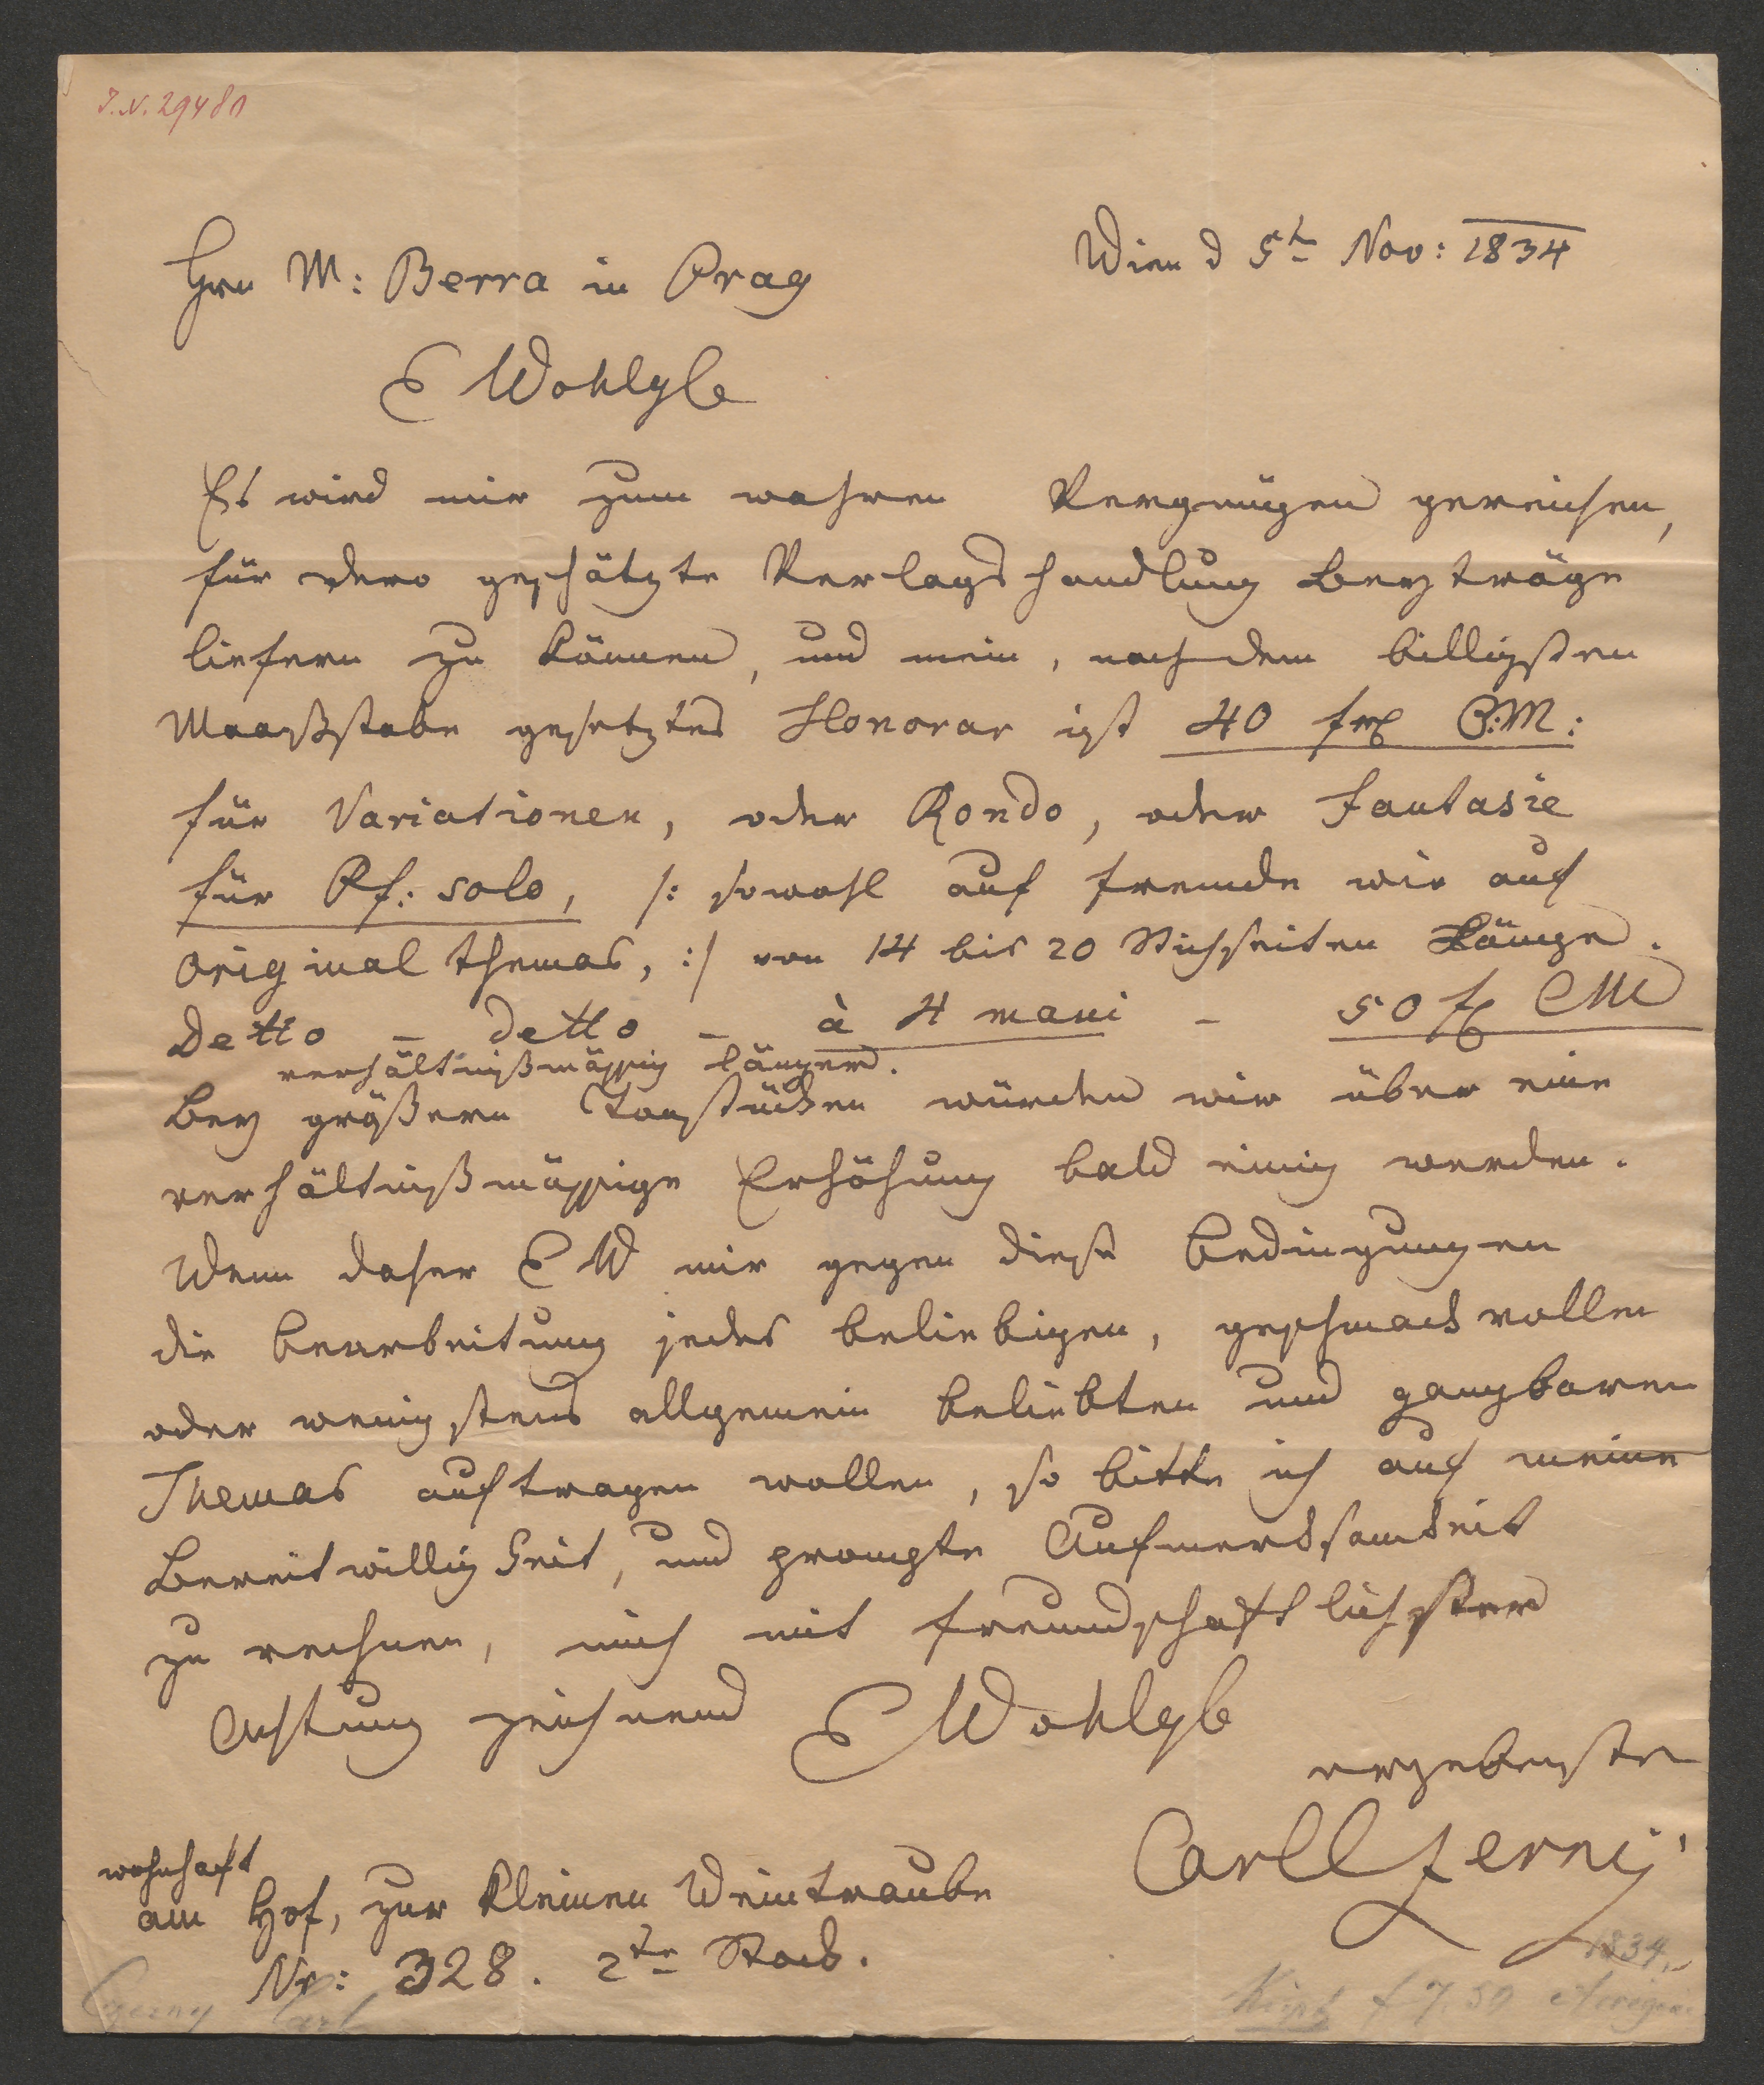 I.N. 29480
Wien d 5t Nov: 1834
Hrn M: Berra in Prag
E Wohlgb
Es wird mir zum wahren Vergnügen gereichen,
für dero geschätzte Verlagshandlung Beyträge
liefern zu können, und mein, nach dem billigsten
Maaßstabe gesetztes Honorar ist 40 f C:M:
für Variationen, oder Rondo, oder Fantasie
für Pf: solo, /: sowohl auf fremde wie auf
original themas, :/ von 14 bis 20 Stichseiten Länge.
Detto – detto – à 4 mani – 50 f CM
verhältnißmässig länger.
Bey größern Tonstücken würden wir über eine
verhältnißmässige Erhöhung bald einig werden.
Wenn daher E W mir gegen diese Bedingungen
die Bearbeitung jedes beliebigen, geschmackvollen
oder wenigstens allgemein beliebten und gangbaren
Themas auftragen wollen, so bitte ich auf meine
Bereitwilligkeit, und prompte Aufmerksamkeit
zu rechnen, mich mit freundschaftlichster
Achtung zeichnend E Wohlgb
ergebenster
Carl Czerny
wohnhaft
am Hof, zur kleinen Weintraube
Nr: 328. 2te Stock.
1834
Czerny Carl
f 7.50